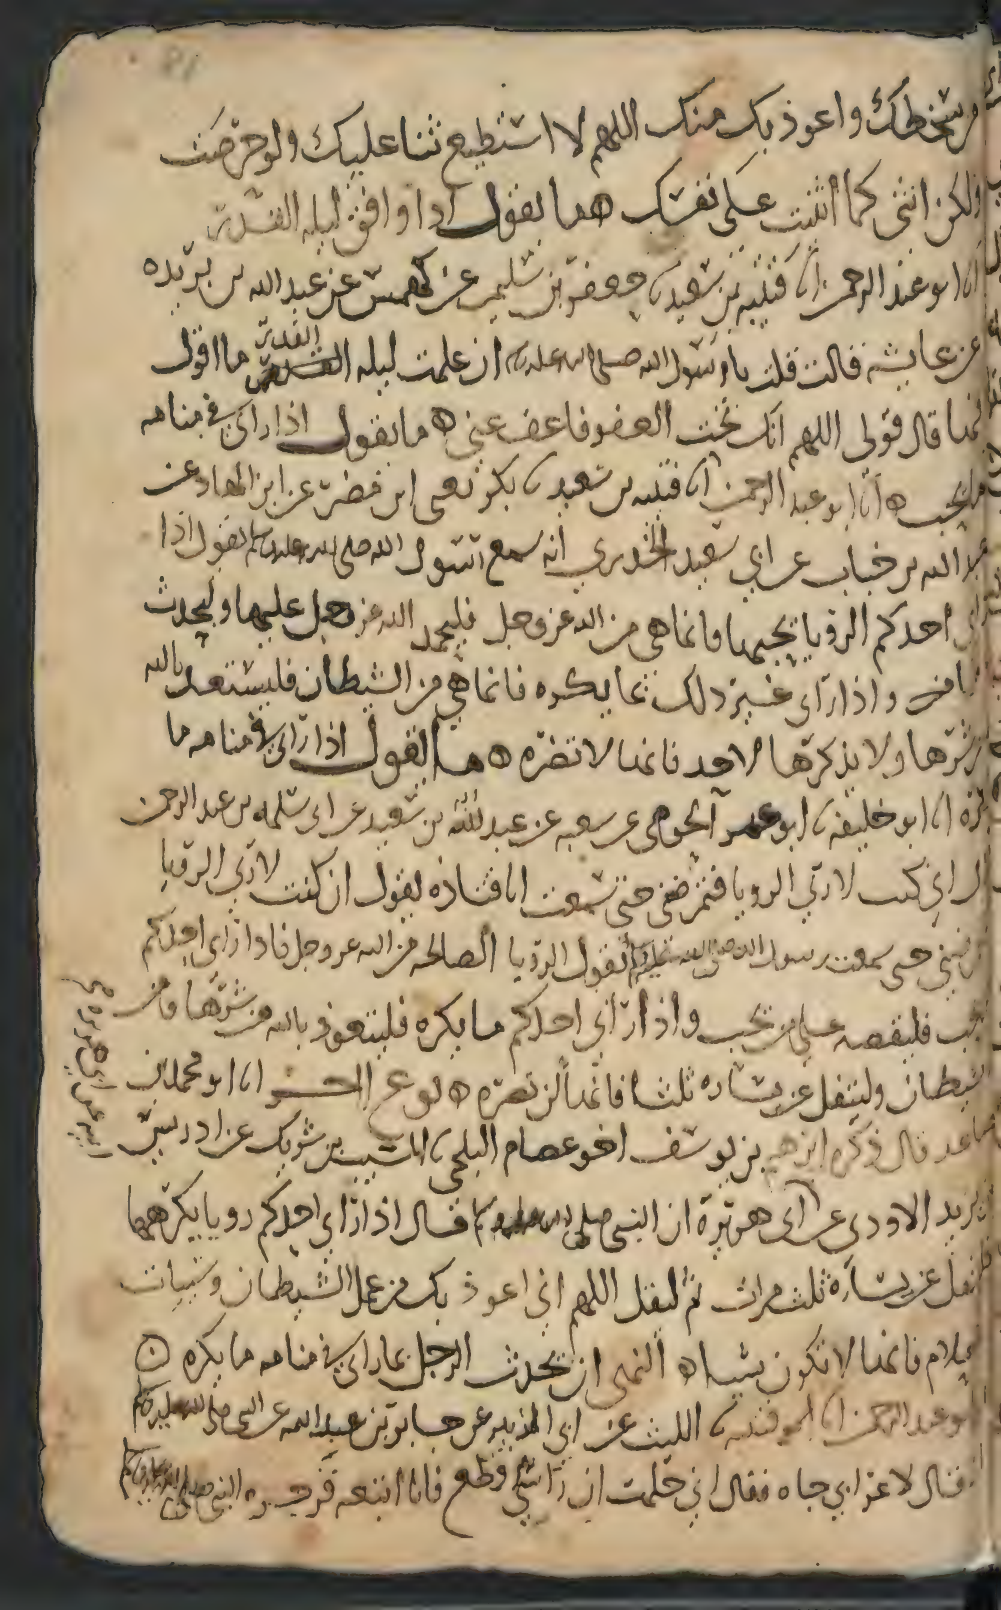 من سخطك واعوذ بك منك اللهم لا استطيع ثنا عليك ولو حرصت
ولكن انت كما اثنيت على نفسك ه ما يقول اذا وافق ليله القدر
انا ابو عبد الرحمن انا قتيبه بن سعيد جعفر بن سليمن عن كهمس عن عبد الله بن بريده
عن عايشه قالت قلت يا رسول الله صلى الله عليه ان علمت ليله القدر ما اقول
فيها قال قولي اللهم انك تحب العفو فاعف عني ه ما يقول اذا راى في منامه
ما يحب ه انا ابو عبد الرحمن انا قتيبه بن سعيد بكر يعني ابن مضر عن ابن الهاد عن
عبد الله بن خباب عن ابي سعيد الخدري انه سمع رسول الله صلى الله عليه وسلم يقول اذا
راى احدكم الرؤيا يحبها فانما هي من الله عز وجل فليحمد الله عز وجل عليها وليحدث
واذا راى غير ذلك مما يكره فانما هي من الشيطان فليستعذ بالله
من شرها ولا يذكرها لاحد فانها لا تضره ه ما يقول اذا راى في منامه ما
يكره انا ابو خليفه ابو عمر الحوضي عن شعبه عن عبد ربه بن سعيد عن ابي سلمه بن عبد الرحمن
قال اني كنت لارى الرويا فتمرضني حتى سمعت ابا قتاده يقول ان كنت لارى الرؤيا
تمرضني حتى سمعت رسول الله صلى الله عليه وسلم يقول الرؤيا الصالحه من الله عز وجل فاذا راى احدكم
ما يحب فليقصه على من يحب واذا راى احدكم ما يكره فليتعوذ بالله من شرها ومن
الشيطان وليتفل عن يساره ثلثا فانها لن تضره ه نوع اخر انا ابو محمد بن
صاعد قال ذكره ابرهيم بن يوسف اخو عصام البلخي انا المسيب بن شريك عن ادريس بن
يزيد الاودي عن ابي هريرة ان النبي صلى الله عليه وسلم قال اذا راى احدكم رويا يكرهها
فليتفل عن يساره ثلث مرات ثم ليقل اللهم اني اعوذ بك من عمل الشيطان وسيئات
الاحلام فانها لا تكون شيا ه النهي ان يحدث الرجل بما راى في منامه ما يكره ه
ابو عبد الرحمن انا قتيبه الليث عن ابي الزبير عن جابر بن عبد الله عن النبي صلى الله عليه وسلم
انه قال لاعرابي جاه فقال اني حلمت ان راسي قطع فانا اتبعه فزجره النبي صلى الله عليه وسلم